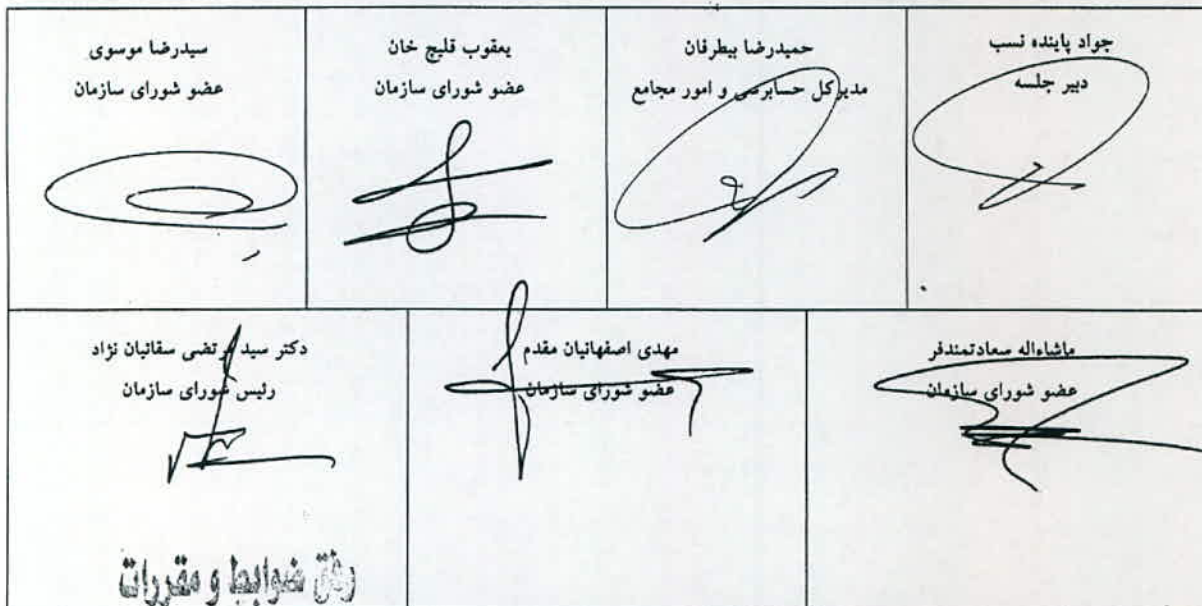 جواد پاینده نسب
دبیر جلسه
حمیدرضا بیطرفان
مدیر کل حسابرسی و امور مجامع
یعقوب قلیچ خان
عضو شورای سازمان
سیدرضا موسوی
عضو شورای سازمان
ماشاءاله سعادتمندفر
عضو شورای سازمان
مهدی اصفهانیان مقدم
عضو شورای سازمان
دکتر سید مرتضی سقائیان نژاد
رئیس شورای سازمان
ضوابط و مقررات